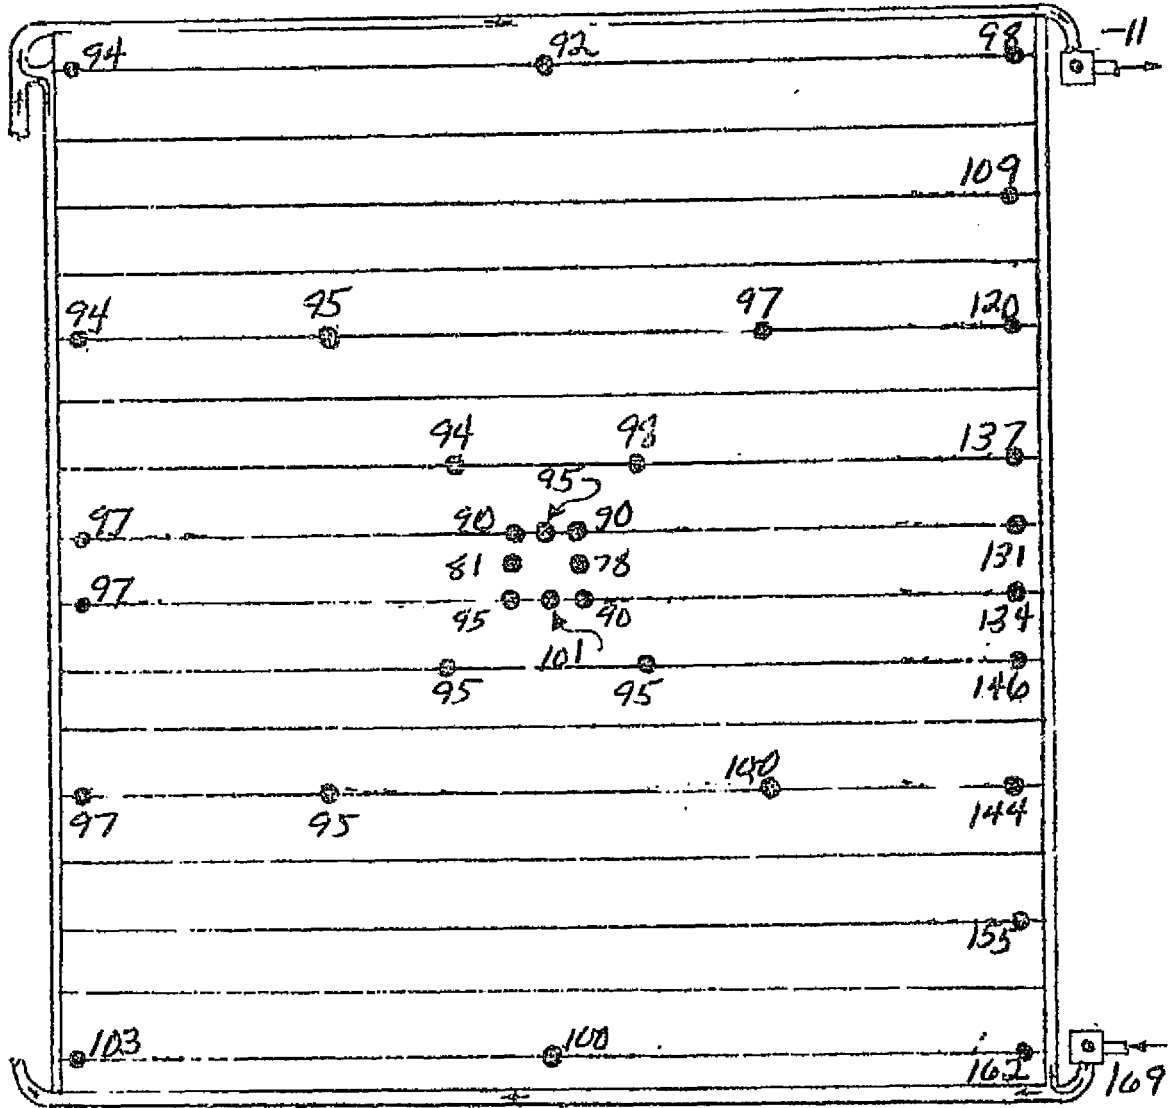 94 92 98 -11
109
94 95 97 120
94 98 137
95
97 90 90
131
81 78
97
95 90 134
101
95 95 146
100
97 95 144
155
103 100
162 169